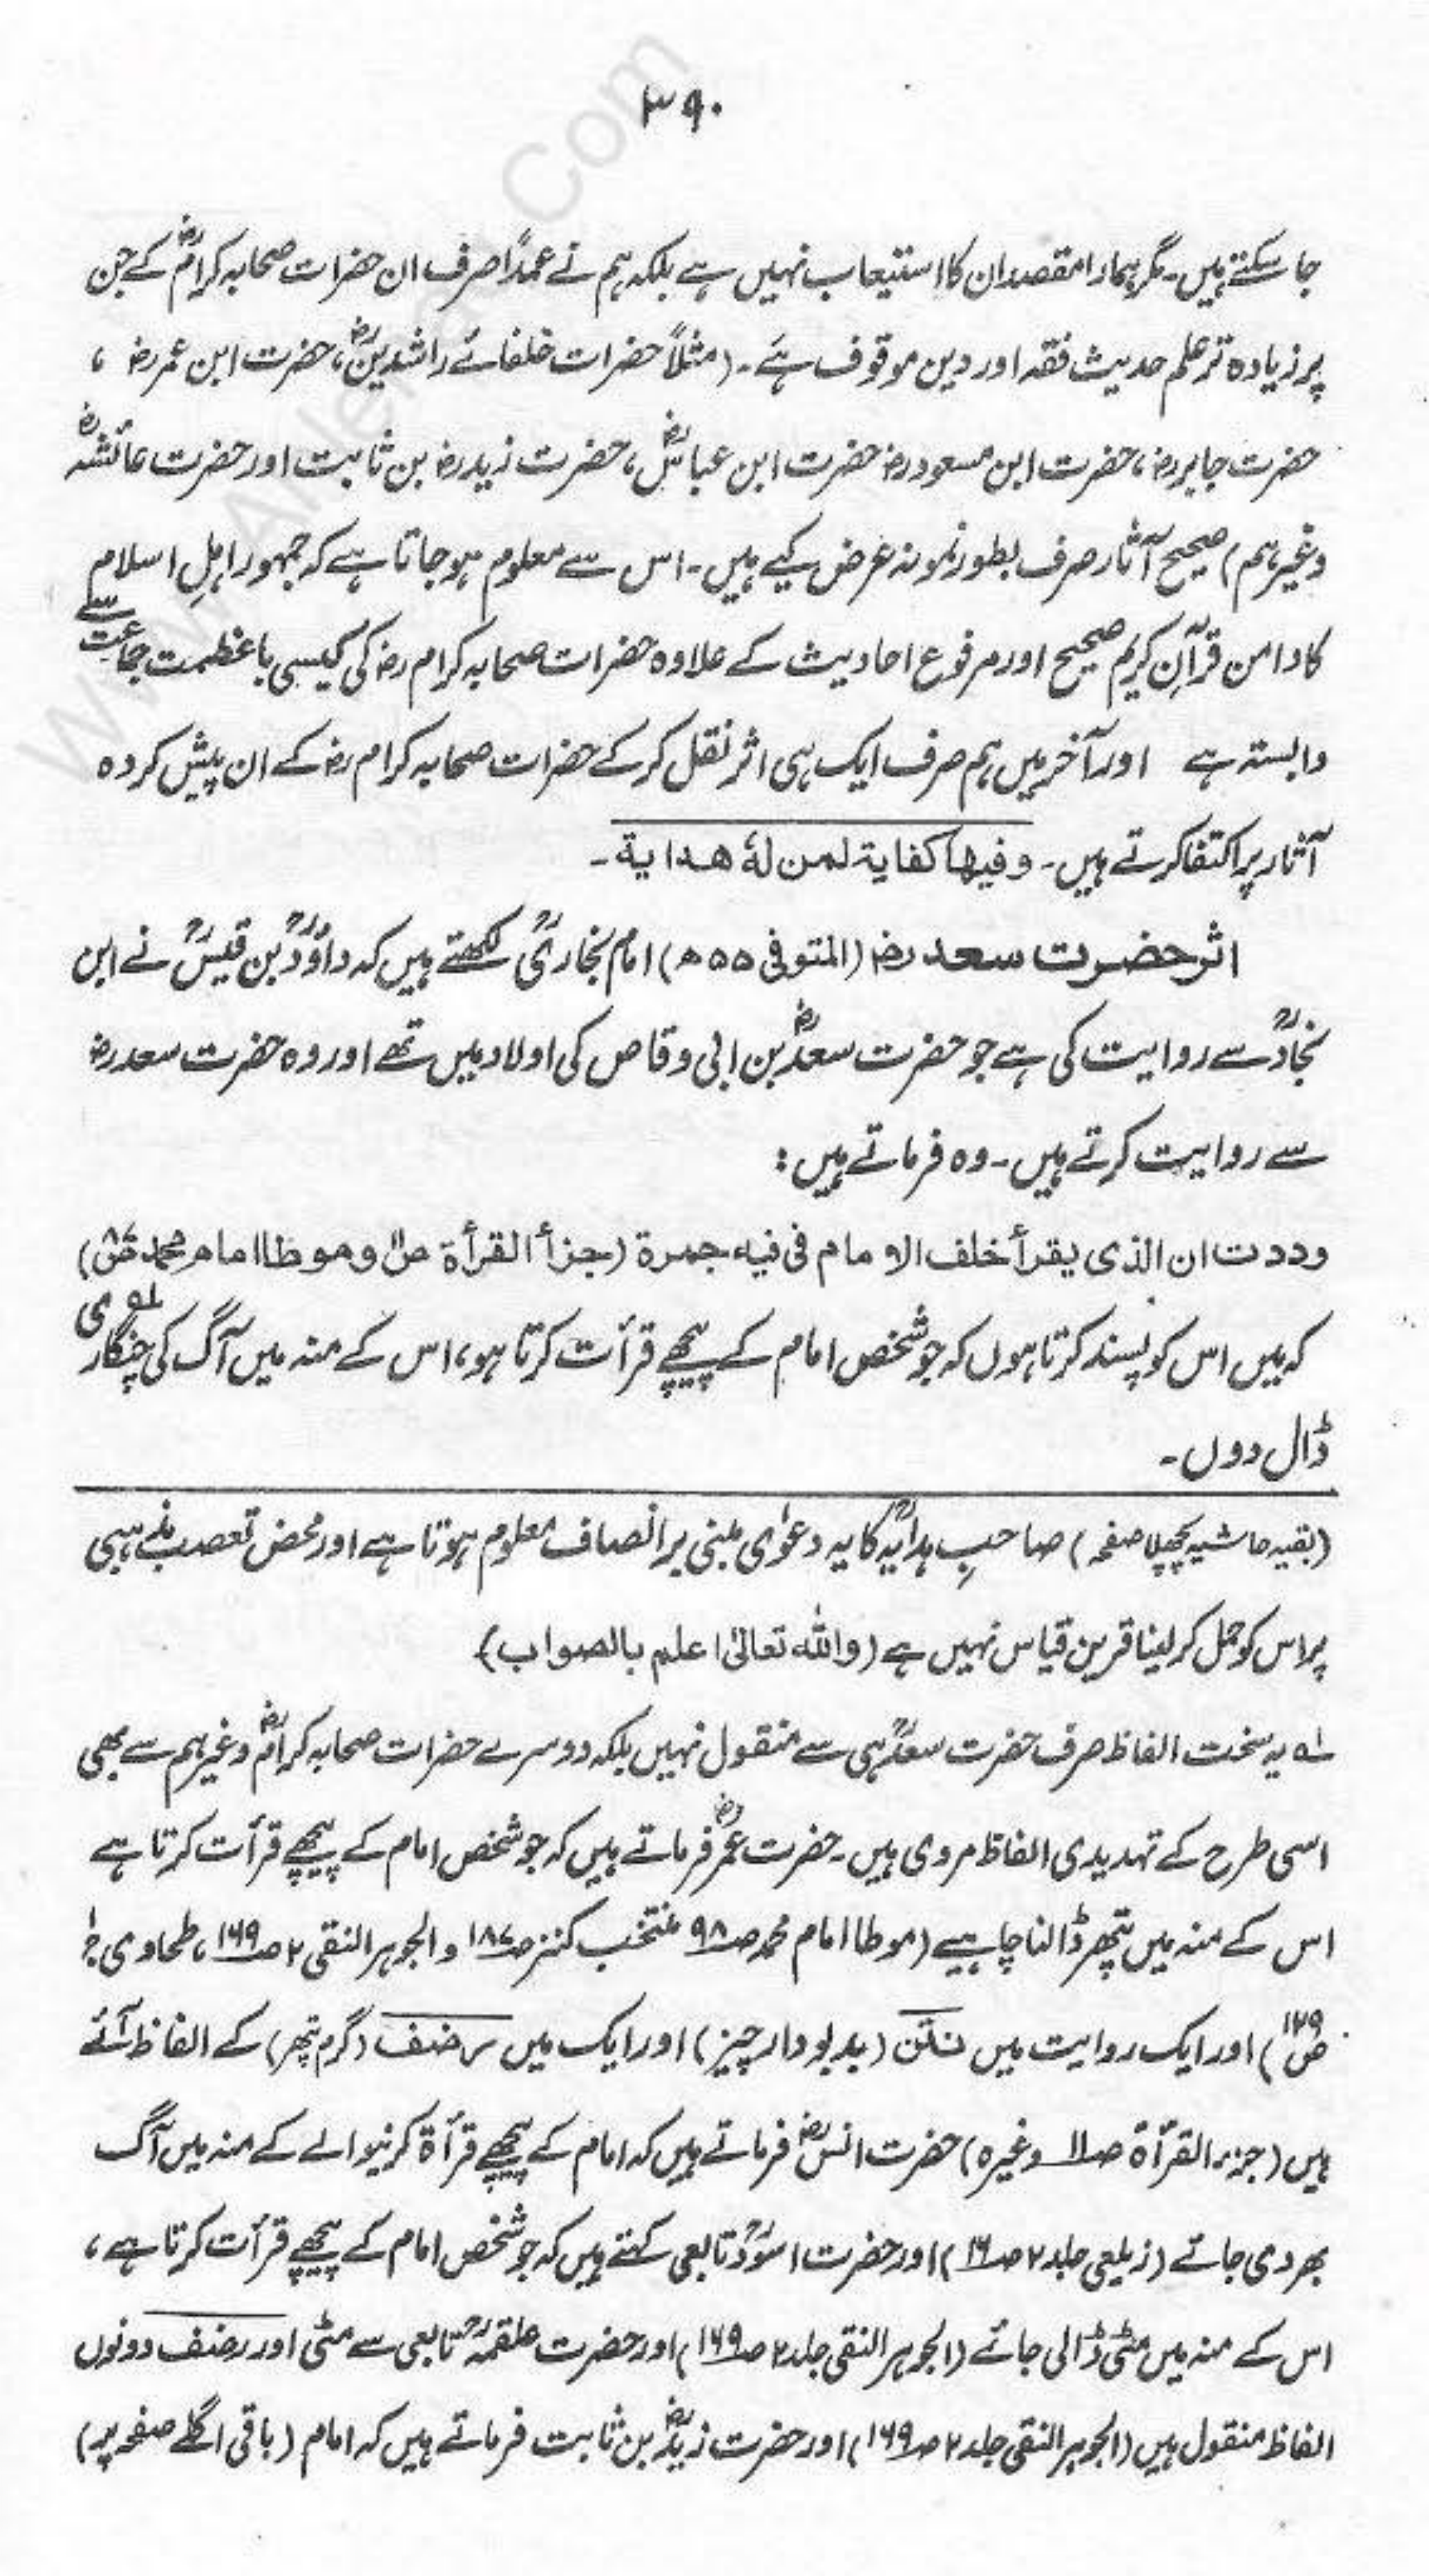 ۳۹۰
جا سکتے ہیں۔ مگر ہمارا مقصد ان کا استیعاب نہیں ہے بلکہ ہم نے عمداً صرف ان حضرات صحابہ کرامؓ کے جن
پر زیادہ تر علم حدیث فقہ اور دین موقوف ہے۔ (مثلاً حضرات خلفائے راشدینؓ، حضرت ابن عمر رضؓ ،
حضرت جابر رضؓ، حضرت ابن مسعود رضؓ حضرت ابن عباسؓ، حضرت زید رضؓ بن ثابت اور حضرت عائشہؓ
وغیرہم) صحیح آثار صرف بطور نمونہ عرض کیے ہیں۔ اس سے معلوم ہو جاتا ہے کہ جمہور اہلِ اسلام
کا دامن قرآنِ کریم صحیح اور مرفوع احادیث کے علاوہ حضرات صحابہ کرام رضؓ کی کیسی باعظمت جماعت سے
وابستہ ہے اور آخر میں ہم صرف ایک ہی اثر نقل کر کے حضرات صحابہ کرام رضؓ کے ان پیش کردہ
آثار پر اکتفا کرتے ہیں۔ وفیھا کفایۃ لمن لہٗ ھدایۃ۔
اثر حضرت سعد رضؓ (المتوفی ۵۵ھ) امام بخاریؒ لکھتے ہیں کہ داؤدؒ بن قیسؒ نے ابن
نجادؒ سے روایت کی ہے جو حضرت سعدؓ بن ابی وقاص کی اولاد میں تھے اور وہ حضرت سعد رضؓ
سے روایت کرتے ہیں۔ وہ فرماتے ہیں:
وددت ان الذی یقرأ خلف الامام فی فیہ جمرۃ (جزأ القرأۃ ص۱۱ وموطا امام محمد ص)
کہ میں اس کو پسند کرتا ہوں کہ جو شخص امام کے پیچھے قرأت کرتا ہو، اس کے منہ میں آگ کی چنگاری ۱ه
ڈال دوں۔
(بقیہ حاشیہ پچھلا صفحہ) صاحبِ ہدایہؒ کا یہ دعوٰی مبنی بر انصاف معلوم ہوتا ہے اور محض تعصب مذہبی
پر اس کو حمل کر لینا قرین قیاس نہیں ہے (واللہ تعالیٰ اعلم بالصواب)
۱ه یہ سخت الفاظ صرف حضرت سعدؓ ہی سے منقول نہیں بلکہ دوسرے حضرات صحابہ کرامؓ وغیرہم سے بھی
اسی طرح کے تہدیدی الفاظ مروی ہیں۔ حضرت عمرؓ فرماتے ہیں کہ جو شخص امام کے پیچھے قرأت کرتا ہے
اس کے منہ میں پتھر ڈالنا چاہیے (موطا امام محمد ص۹۸ منتخب کنز ص۱۸۷ و الجوہر النقی ۲ ص۱۶۹، طحاوی ج۱
ص۱۲۹) اور ایک روایت میں نتن (بدبودار چیز) اور ایک میں رضف (گرم پتھر) کے الفاظ آئے
ہیں (جزء القرأۃ ص۱۱ وغیرہ) حضرت انسؓ فرماتے ہیں کہ امام کے پیچھے قرأۃ کرنیوالے کے منہ میں آگ
بھر دی جائے (زیلعی جلد ۲ ص۱۹) اور حضرت اسودؒ تابعی کہتے ہیں کہ جو شخص امام کے پیچھے قرأت کرتا ہے،
اس کے منہ میں مٹی ڈالی جائے (الجوہر النقی جلد ۲ ص۱۶۹) اور حضرت علقمہؒ تابعی سے مٹی اور رضف دونوں
الفاظ منقول ہیں (الجوہر النقی جلد ۲ ص۱۶۹) اور حضرت زیدؓ بن ثابت فرماتے ہیں کہ امام (باقی اگلے صفحہ پر)